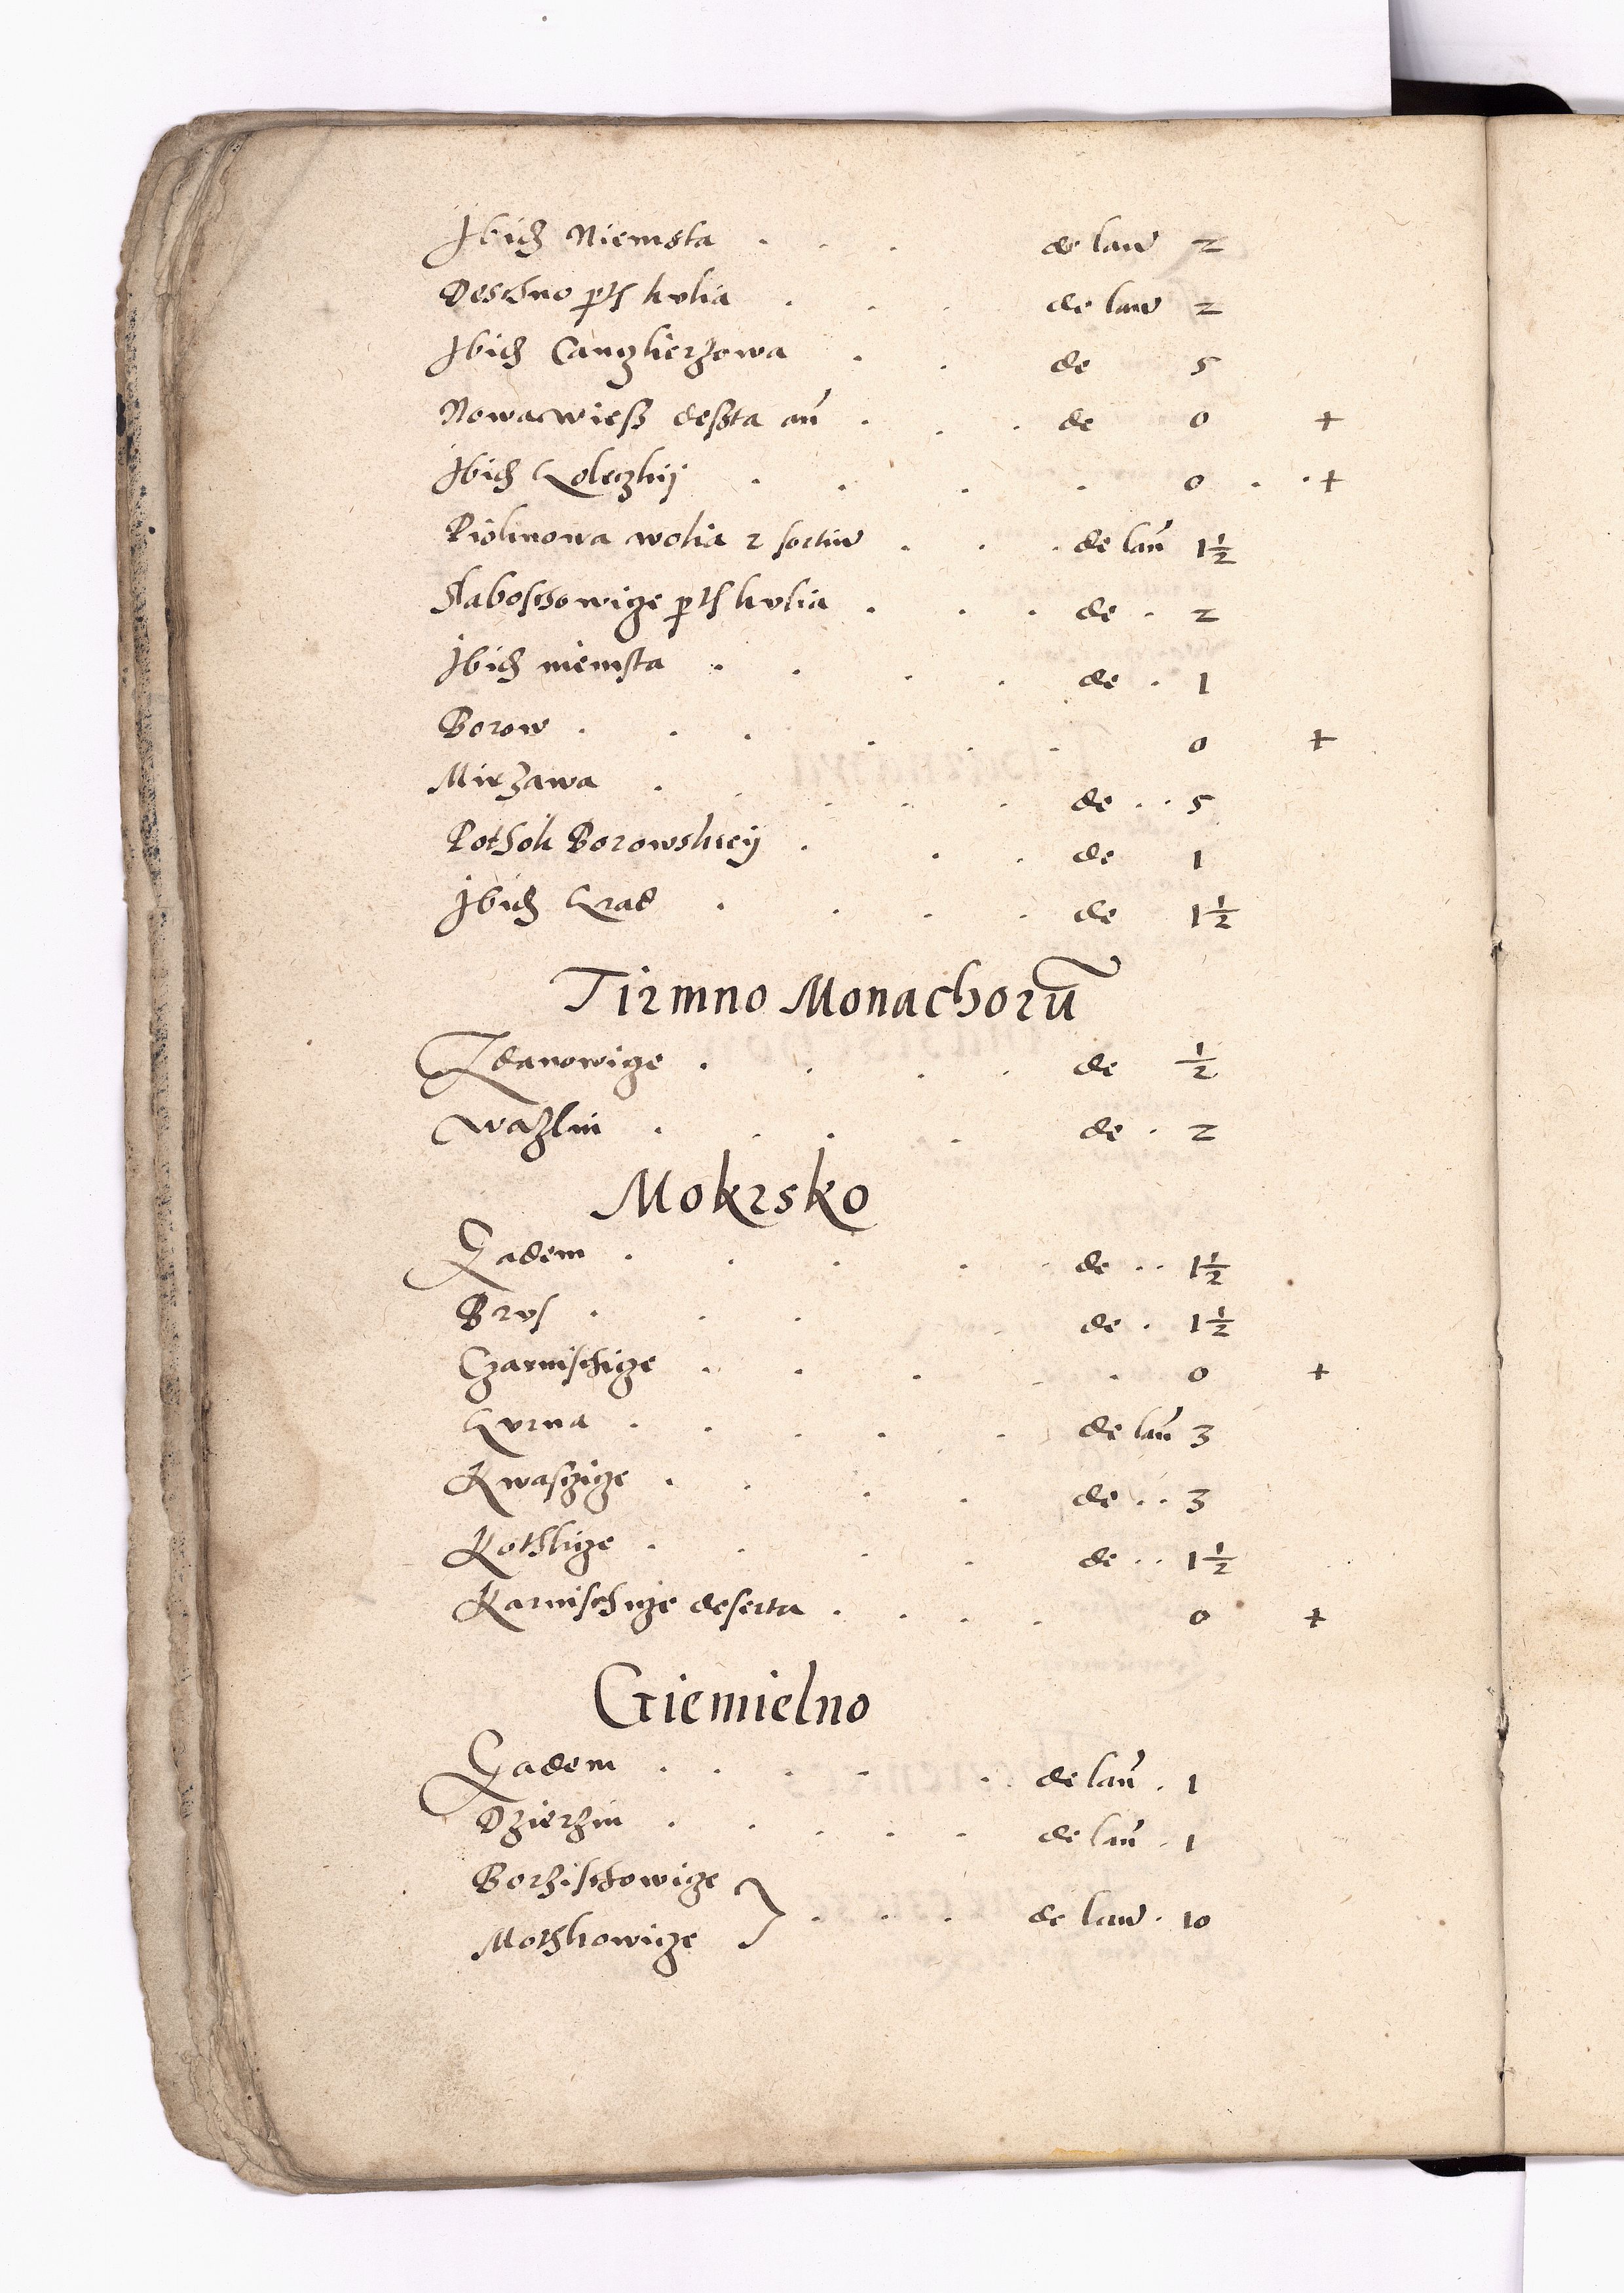 Ibid Niemsta . . . de lan 2
Deschno pts kvlia . . . de lan 2
Ibid Canczlierzowa . . de 5
Nowawieß deßta an . . . de 0 +
Ibid Koleczkij . . . . 0 . . +
Piolunowa wolia 2 sortiu . . . de lan 1 1/2
Slaboschowicze pts kvlia . . . de . 2
Ibid niemsta . . . . de . 1
Borow . . . . . . 0 +
Mirzawa . . . . . de . . 5
Pothok Borowskiej . . . de 1
Ibid Krad . . . . de 1 1/2
Tirmno Monachorū
Zdanowicze . . . . de 1/2
Wazlin . . . . de . 2
Mokrsko
Eadem . . . . . de . . 1 1/2
Brvs . . . . de . 1 1/2
Czarnischicze . . . . . 0 +
Kvrna . . . . . de lan 3
Kwasczicze . . . . de . . 3
Kothlicze . . . . de . . 1 1/2
Karnischicze deserta . . . . 0 +
Giemielno
Eadem . . . . . de lan . 1
Dzierzin . . . . . de lan . 1
Borzischowicze
Mothkowicze } . . . de lan . 10